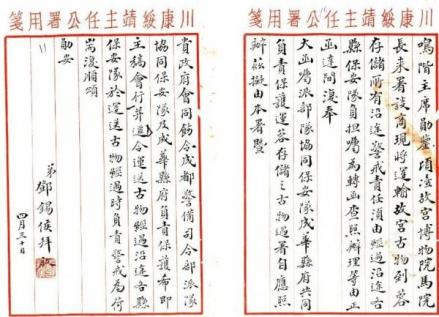 川康綏靖主任公署用箋
鳴階主席勛鑒頃准故宮博物院馬院
長来署談商現將運輸故宮古物到蓉
存儲所有沿途警戒責任須由經過沿途各
縣保安隊負担囑為轉函查照辦理等由正
函達間復奉
大函囑派部隊協同保安隊成華縣府共同
負責保護運蓉存儲之古物過署自應照
辦茲擬由本署暨
川康綏靖主任公署用箋
貴政府會同飭令成都警備司令部派隊
協同保安隊及成華縣府負責保護布即
主稿會行并通令運送古物經過沿途各縣
保安隊於運送古物經過時負責警戒為荷
耑復順頌
勛安
弟 鄧錫侯拜啟
四月三十日